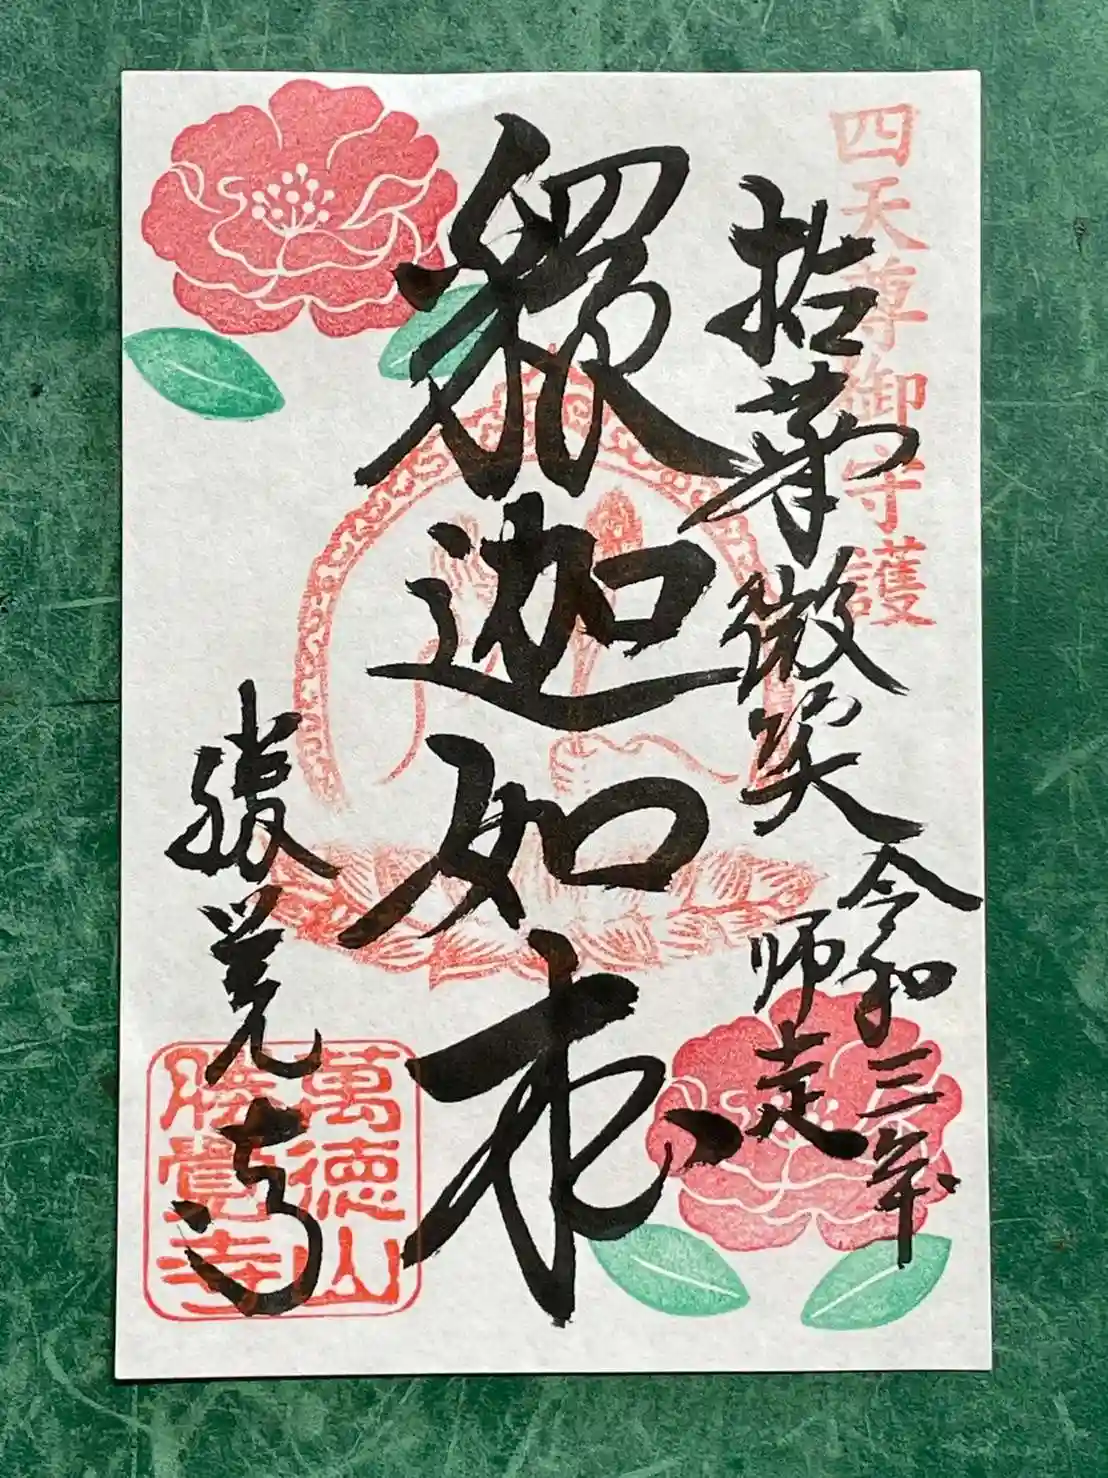 四天尊御守護
拈華微笑
令和三年
師走
釋迦如来
勝覚寺
萬徳山
勝覺寺